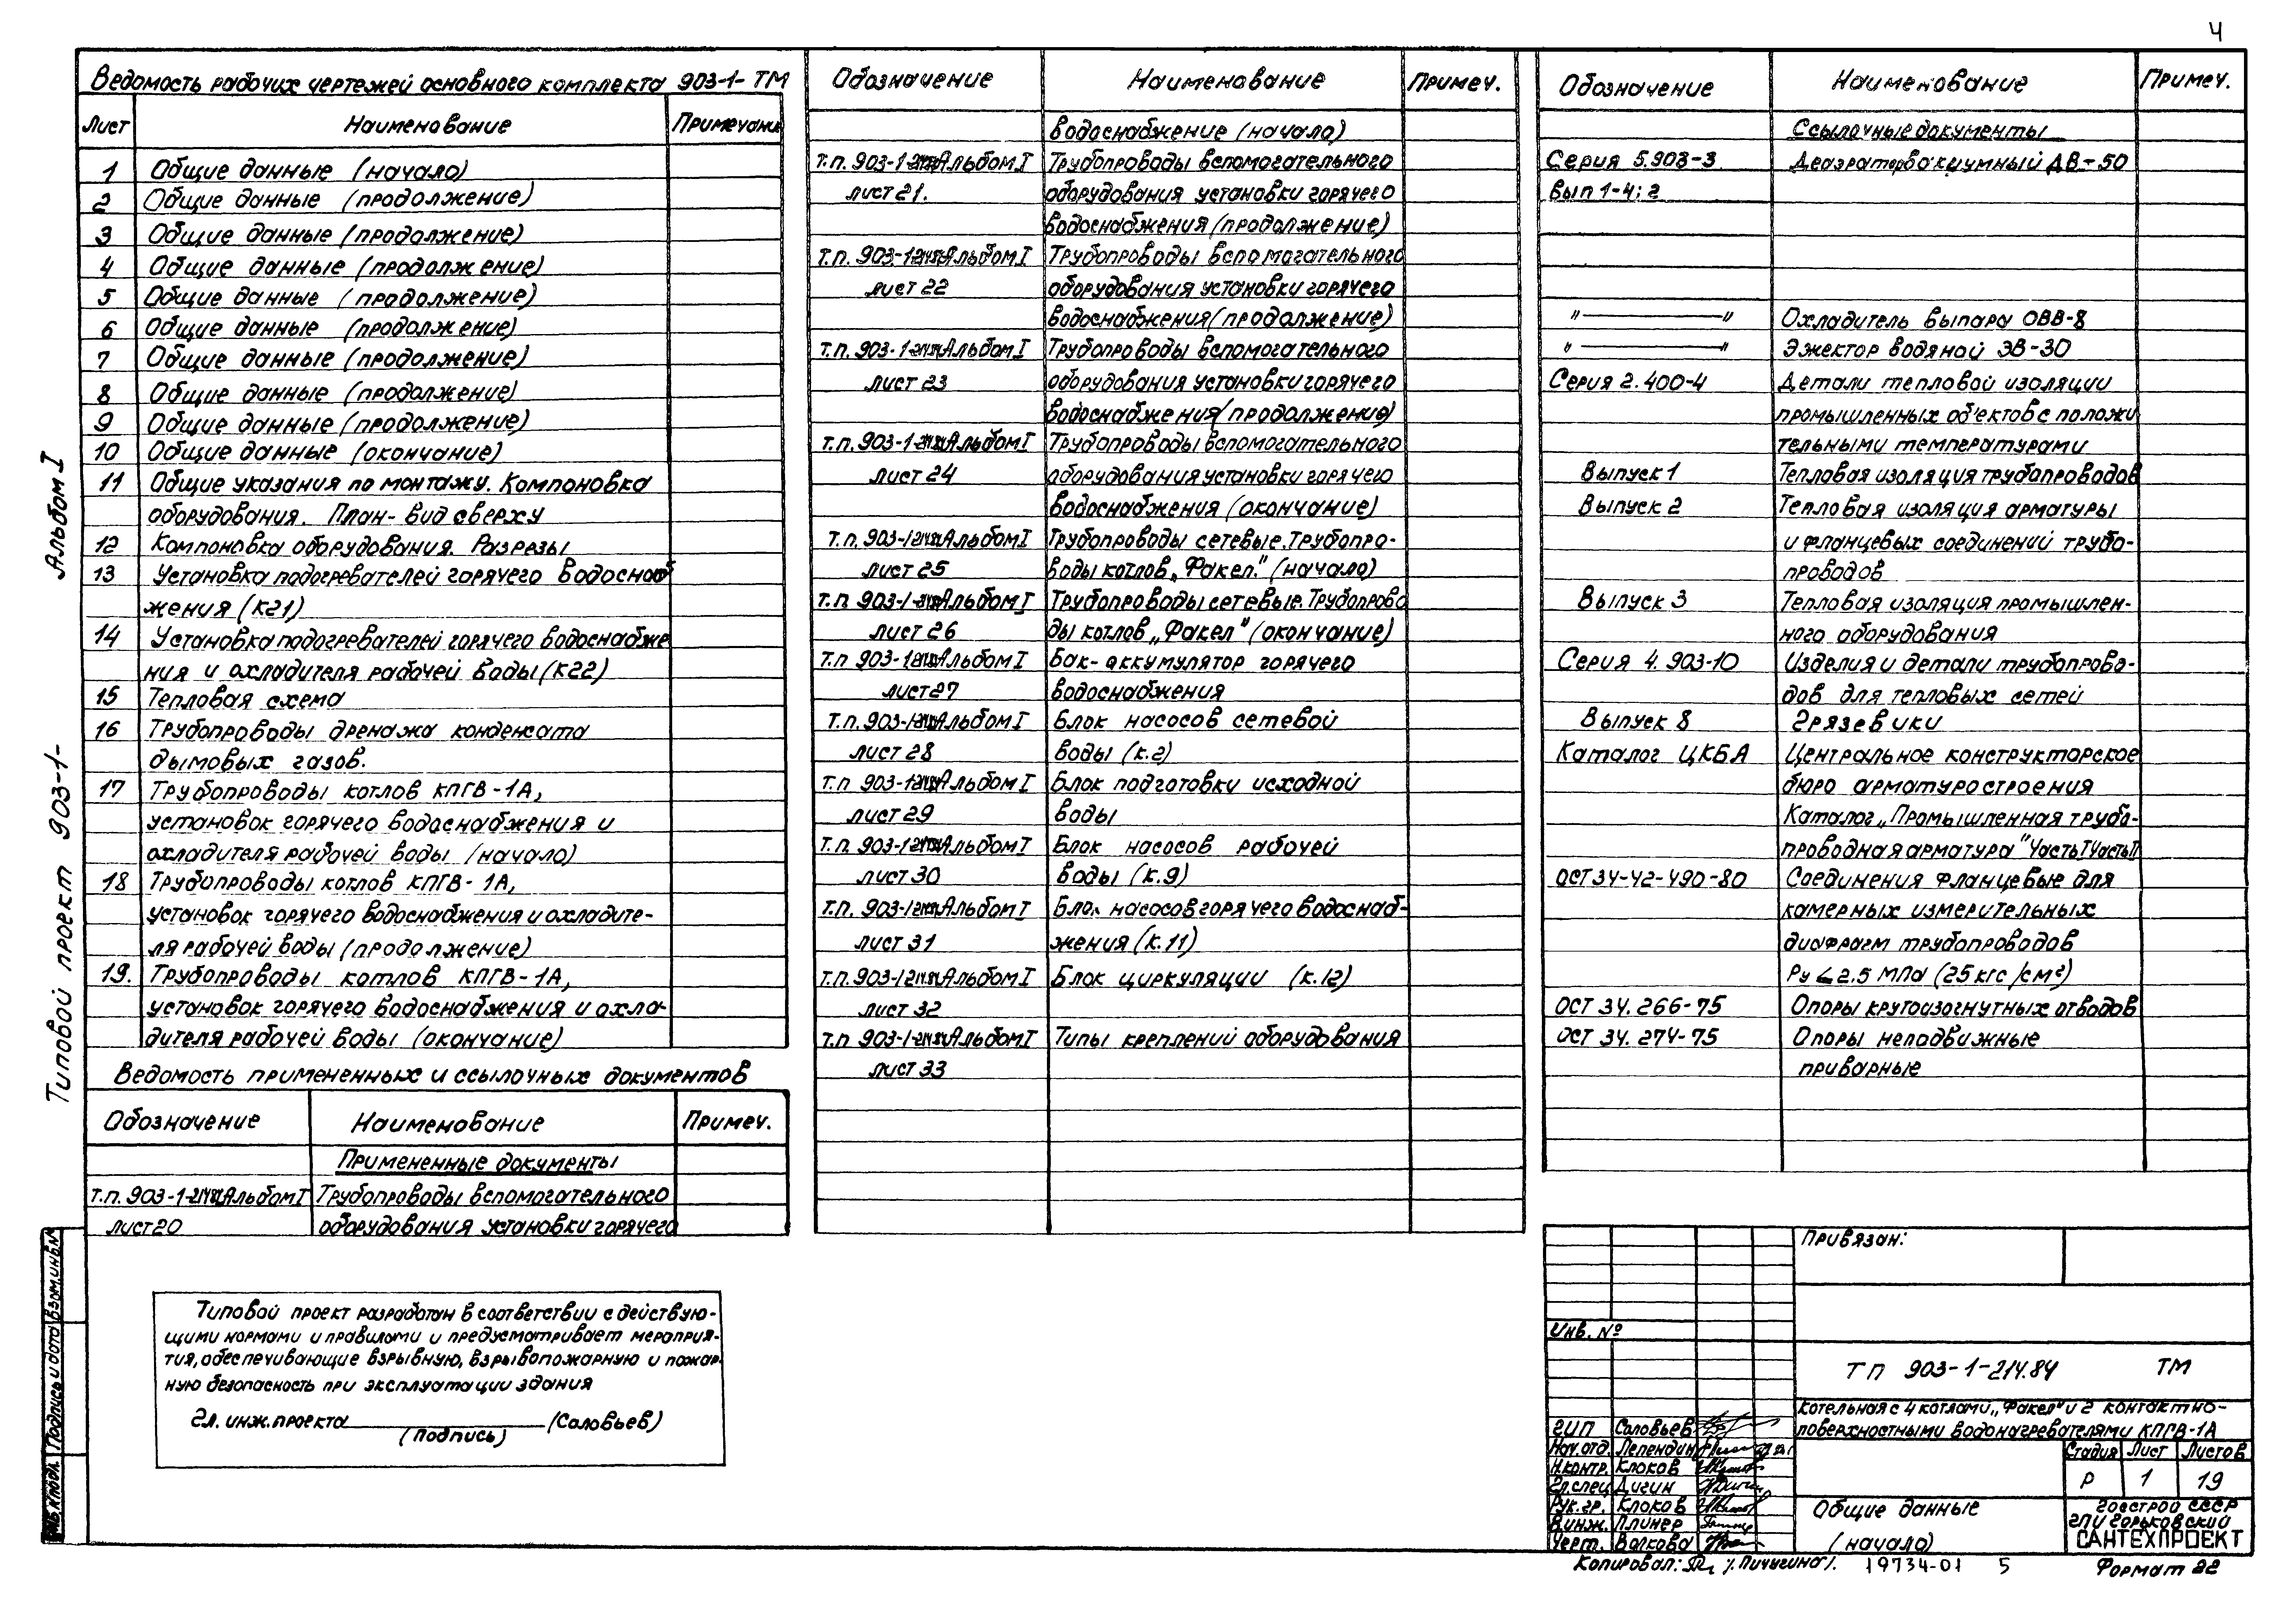 4
Альбом I
Типовой проект 903-1-
Ведомость рабочих чертежей основного комплекта 903-1- ТМ
Лист Наименование Примечани
1 Общие данные (начало)
2 Общие данные (продолжение)
3 Общие данные (продолжение)
4 Общие данные (продолжение)
5 Общие данные (продолжение)
6 Общие данные (продолжение)
7 Общие данные (продолжение)
8 Общие данные (продолжение)
9 Общие данные (продолжение)
10 Общие данные (окончание)
11 Общие указания по монтажу. Компоновка
оборудования. План- вид сверху
12 Компоновка оборудования. Разрезы
13 Установка подогревателей горячего водоснаб
жения (к21)
14 Установка подогревателей горячего водоснабже
ния и охладителя рабочей воды (к22)
15 Тепловая схема
16 Трубопроводы дренажа конденсата
дымовых газов.
17 Трубопроводы котлов КПГВ-1А,
установок горячего водоснабжения и
охладителя рабочей воды (начало)
18 Трубопроводы котлов КПГВ-1А,
установок горячего водоснабжения и охладите-
ля рабочей воды (продолжение)
19. Трубопроводы котлов КПГВ-1А,
установок горячего водоснабжения и охла-
дителя рабочей воды (окончание)
Ведомость примененных и ссылочных документов
Обозначение Наименование Примеч.
Примененные документы
т.п. 903-1-214.84 Альбом I Трубопроводы вспомогательного
лист 20 оборудования установки горячего
Типовой проект разработан в соответствии с действую-
щими нормами и правилами и предусматривает мероприя-
тия, обеспечивающие взрывную, взрывопожарную и пожар-
ную безопасность при эксплуатации здания
Гл. инж. проекта (Соловьев)
(подпись)
Обозначение Наименование Примеч.
водоснабжение (начало)
т.п. 903-1-214.84 Альбом I Трубопроводы вспомогательного
лист 21. оборудования установки горячего
водоснабжения (продолжение)
т.п. 903-1-214.84 Альбом I Трубопроводы вспомогательного
лист 22 оборудования установки горячего
водоснабжения (продолжение)
т.п. 903-1-214.84 Альбом I Трубопроводы вспомогательного
лист 23 оборудования установки горячего
водоснабжения (продолжение)
т.п. 903-1-214.84 Альбом I Трубопроводы вспомогательного
лист 24 оборудования установки горячего
водоснабжения (окончание)
т.п. 903-1-214.84 Альбом I Трубопроводы сетевые. Трубопро-
лист 25 воды котлов „Факел." (начало)
т.п. 903-1-214.84 Альбом I Трубопроводы сетевые. Трубопрово
лист 26 ды котлов „Факел" (окончание)
т.п 903-1-214.84 Альбом I Бак-аккумулятор горячего
лист 27 водоснабжения
т.п. 903-1-214.84 Альбом I Блок насосов сетевой
лист 28 воды (к.2)
т.п. 903-1-214.84 Альбом I Блок подготовки исходной
лист 29 воды
т.п. 903-1-214.84 Альбом I Блок насосов рабочей
лист 30 воды (к.9)
т.п. 903-1-214.84 Альбом I Блок насосов горячего водоснаб-
лист 31 жения (к.11)
т.п. 903-1-214.84 Альбом I Блок циркуляции (к.12)
лист 32
т.п 903-1-214.84 Альбом I Типы креплений оборудования
лист 33
Обозначение Наименование Примеч.
Ссылочные документы
Серия 5.903-3 Деаэратор вакуумный ДВ-50
Вып 1-4; 2
" — " Охладитель выпара ОВВ-8
" — " Эжектор водяной ЭВ-30
Серия 2.400-4 Детали тепловой изоляции
промышленных об'ектов с положи
тельными температурами
Выпуск 1 Тепловая изоляция трубопроводов
Выпуск 2 Тепловая изоляция арматуры
и фланцевых соединений трубо-
проводов
Выпуск 3 Тепловая изоляция промышлен-
ного оборудования
Серия 4.903-10 Изделия и детали трубопрово-
дов для тепловых сетей
Выпуск 8 Грязевики
Каталог ЦКБА Центральное конструкторское
бюро арматуростроения
Каталог „Промышленная трубо-
проводная арматура" Часть I Часть II
ОСТ 34-42-490-80 Соединения фланцевые для
камерных измерительных
диафрагм трубопроводов
Ру ≤ 2.5 МПа (25 кгс/см²)
ОСТ 34.266-75 Опоры крутоизогнутых отводов
ОСТ 34.274-75 Опоры неподвижные
приварные
Привязан:
Инв. №
ТП 903-1-214.84 ТМ
Котельная с 4 котлами „Факел" и 2 контактно-
поверхностными водонагревателями КПГВ-1А
ГИП Соловьев
Нач.отд. Лепендин
Н.контр. Клоков
Гл.спец Дигин
Рук.гр. Клоков
В.инж. Плинер
Черт. Волкова
Стадия Лист Листов
Р 1 19
Общие данные
(начало)
Госстрой СССР
ГПИ Горьковский
САНТЕХПРОЕКТ
Копировал: /Пичугина/. 19734-01 5 Формат 22
Взам.инв.№
Подпись и дата
Инв.№подл.